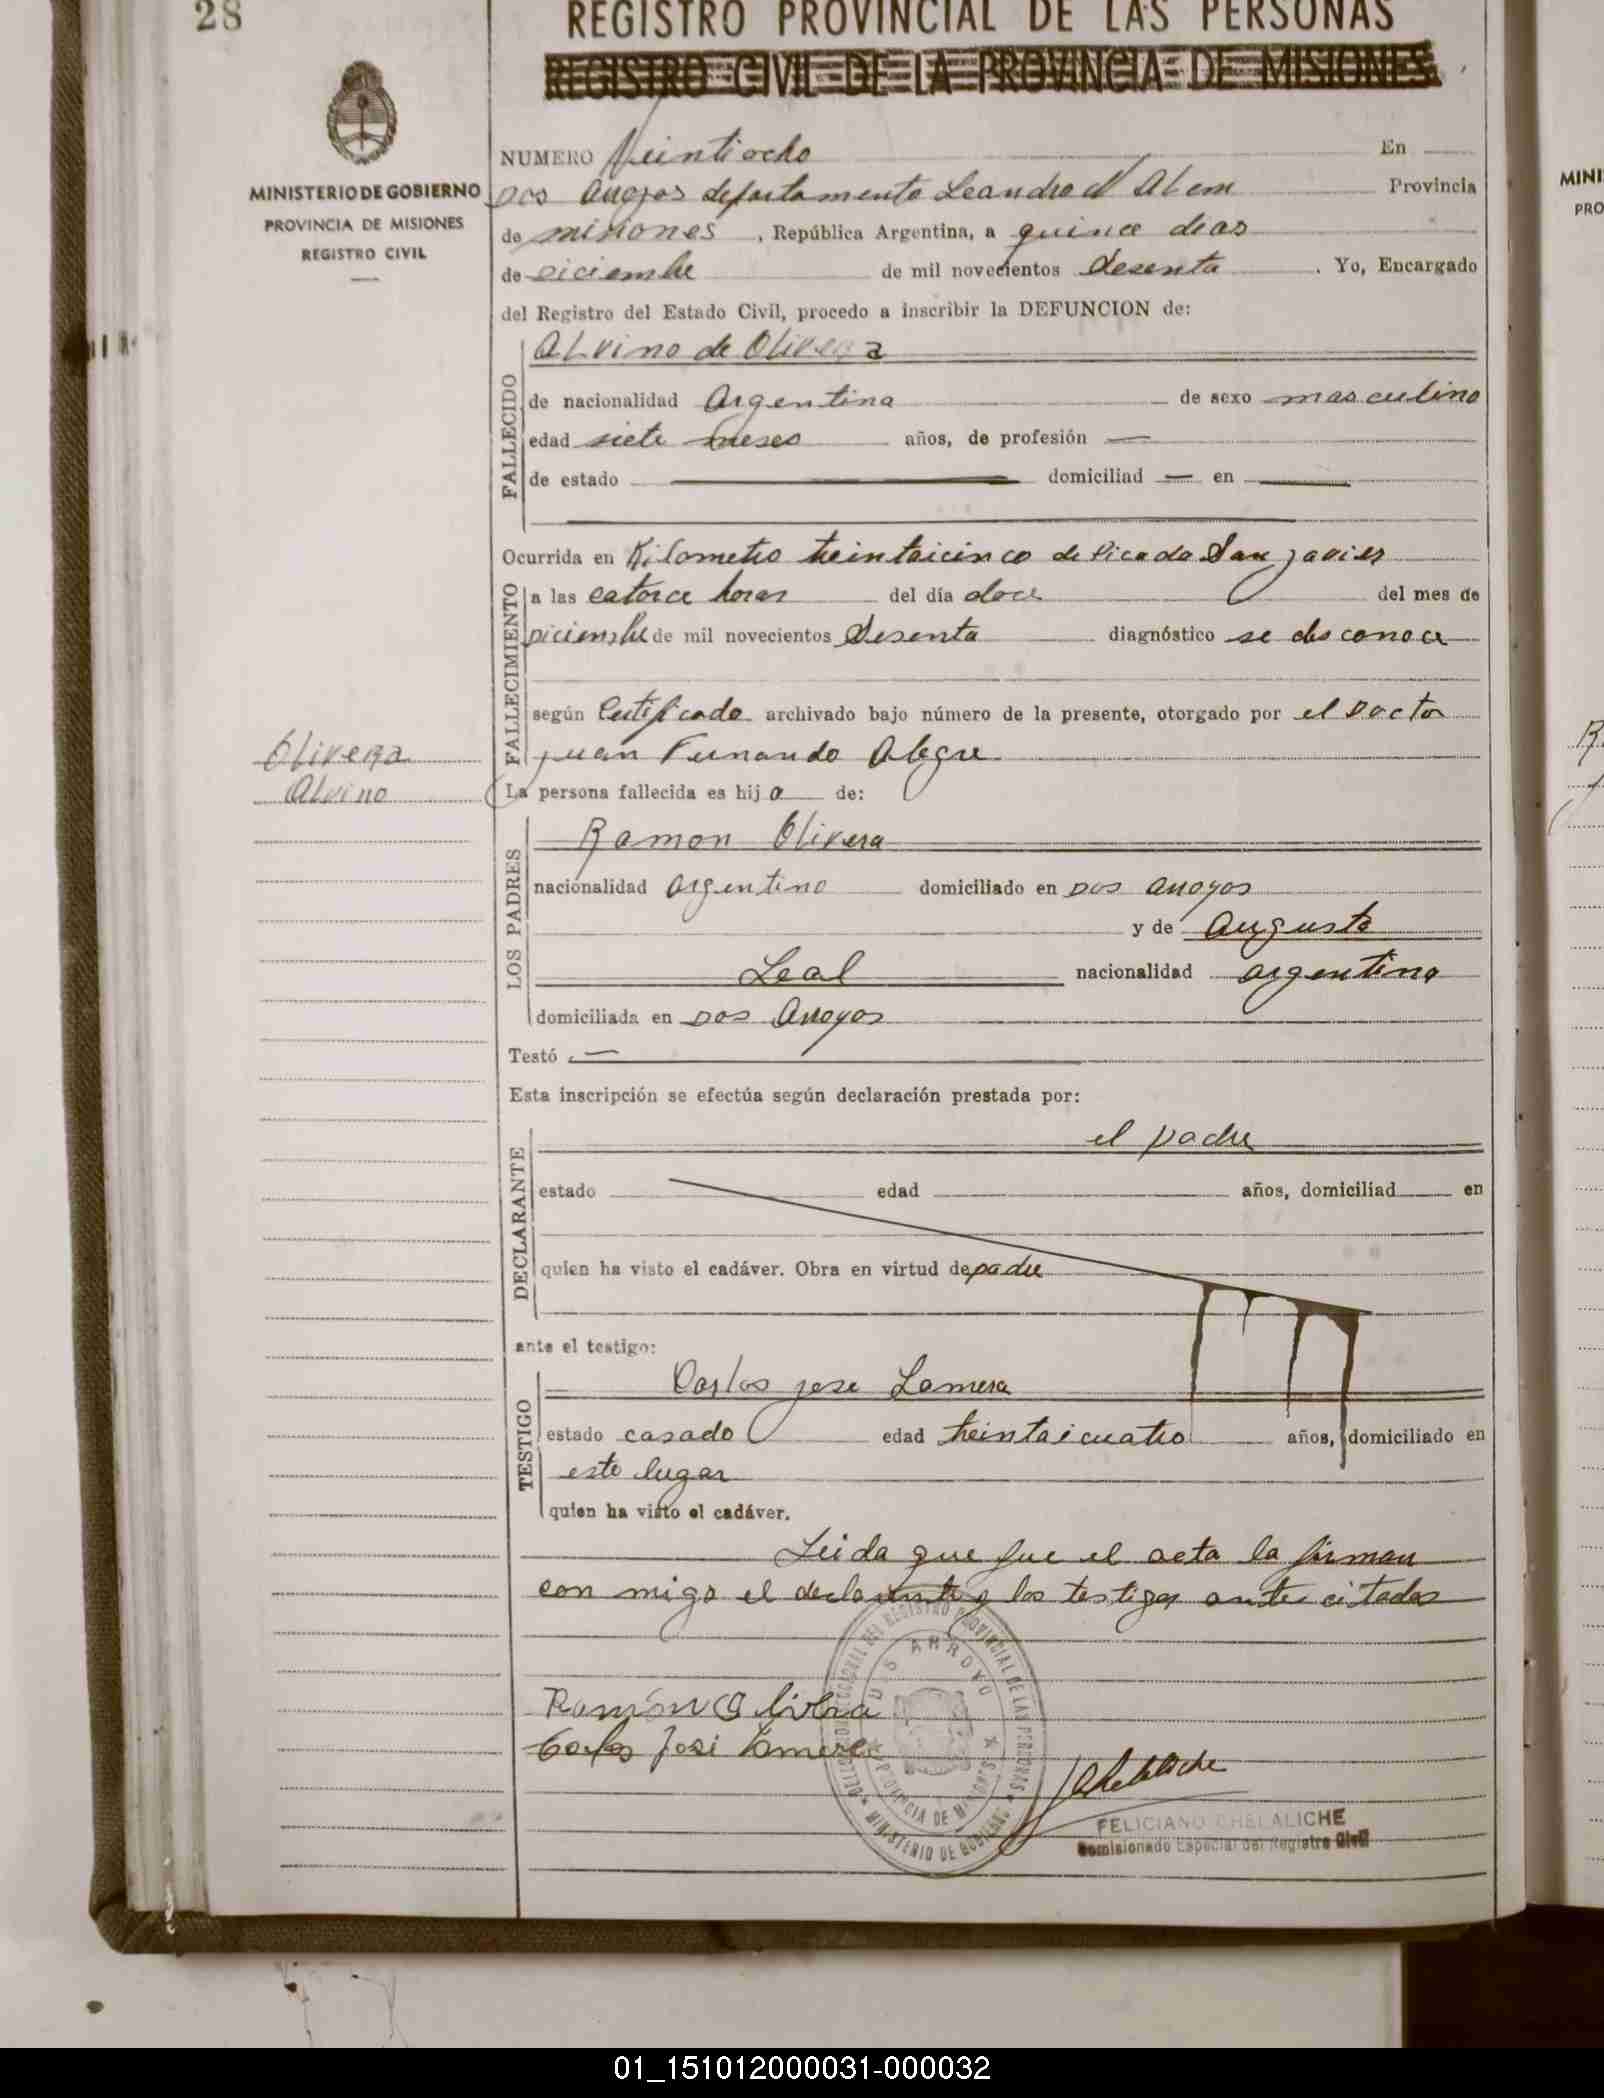 28
REGISTRO PROVINCIAL DE LAS PERSONAS
REGISTRO CIVIL DE LA PROVINCIA DE MISIONES
MINISTERIO DE GOBIERNO
PROVINCIA DE MISIONES
REGISTRO CIVIL
NUMERO Veintiocho En
Dos Arroyos departamento Leandro N Alem Provincia
de misiones, República Argentina, a quince dias
de Diciembre de mil novecientos sesenta. Yo, Encargado
del Registro del Estado Civil, procedo a inscribir la DEFUNCION de:
Alvino de Olivera
FALLECIDO
de nacionalidad Argentina de sexo masculino
edad siete meses años, de profesión —
de estado — domiciliad — en —
Ocurrida en Kilometro treintaicinco de Picada San Javier
FALLECIMIENTO
a las catorce horas del día doce del mes de
Diciembre de mil novecientos sesenta diagnóstico se desconoce
según Certificado archivado bajo número de la presente, otorgado por el Doctor
Juan Fernando Alegre
Olivera
Alvino
La persona fallecida es hijo de:
LOS PADRES
Ramon Olivera
nacionalidad argentino domiciliado en Dos Arroyos
y de Augusta
Leal nacionalidad argentina
domiciliada en Dos Arroyos
Testó —
Esta inscripción se efectúa según declaración prestada por:
DECLARANTE
el padre
estado edad años, domiciliad en
quien ha visto el cadáver. Obra en virtud de padre
ante el testigo:
TESTIGO
Carlos jose Lamera
estado casado edad treintaicuatro años, domiciliado en
este lugar
quien ha visto el cadáver.
Leida que fue el acta la firman
con migo el declarante y los testigos ante citados
DELEGACION SECCIONAL DEL REGISTRO PROVINCIAL DE LAS PERSONAS
DOS ARROYOS
PROVINCIA DE MISIONES
MINISTERIO DE GOBIERNO
Ramón Olivera
Carlos José Lamera
FELICIANO CHELALICHE
Comisionado Especial del Registro Civil
MINI
PRO
01_151012000031-000032